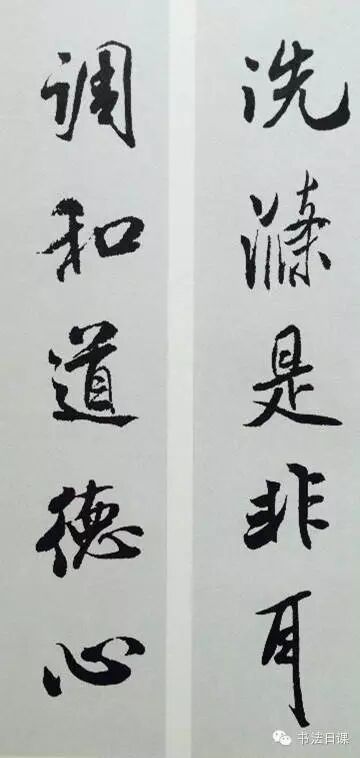 洗滌是非耳
调和道德心
书法日课